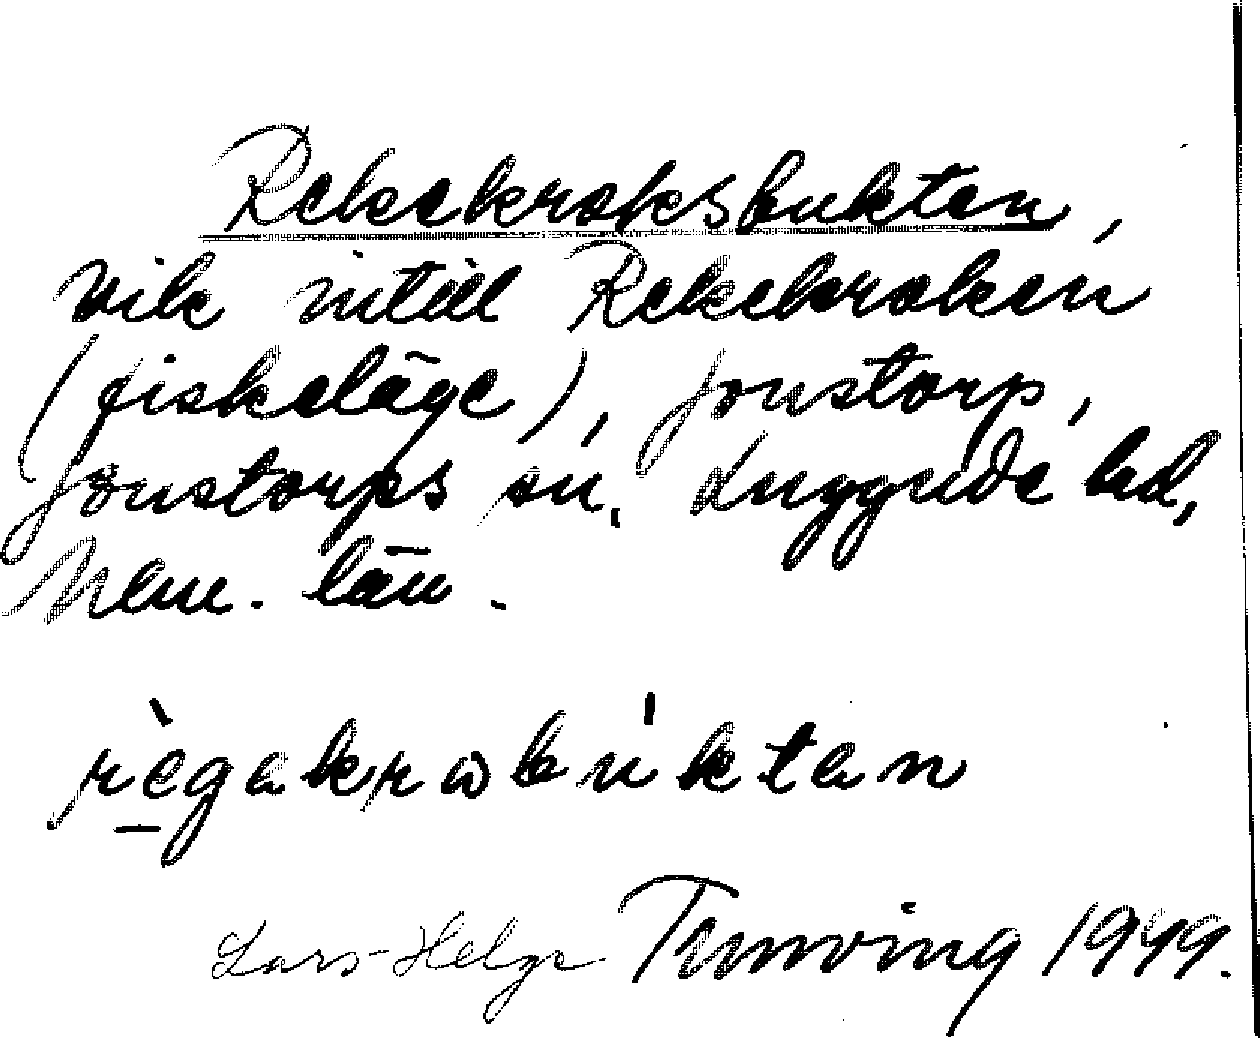 Rekekroksbukten,
vik intill Rekekroken
(fiskeläge), Jonstorp,
Jonstorps sn. Luggude hd,
län.
règakrabúktan
Lars-Helge Tunving 1949.